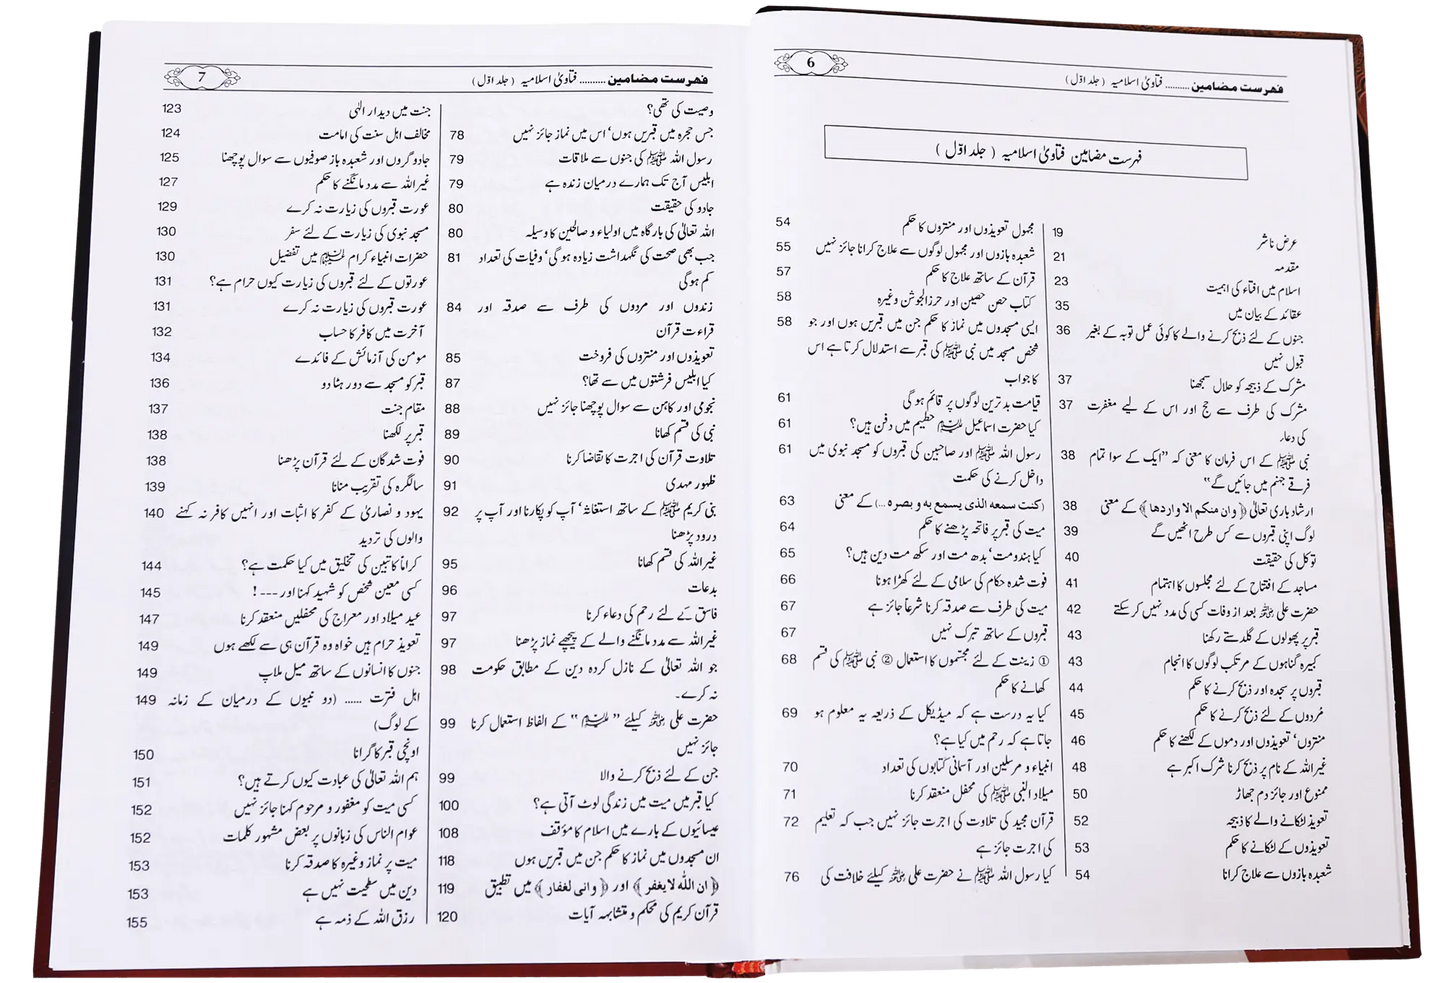 6
فہرست مضامین .......... فتاویٰ اسلامیہ ( جلد اوّل )
فہرست مضامین فتاویٰ اسلامیہ ( جلد اوّل )
عرض ناشر 19
مقدمہ 21
اسلام میں افتاء کی اہمیت 23
عقائد کے بیان میں 35
جنوں کے لئے ذبح کرنے والے کا کوئی عمل توبہ کے بغیر 36
قبول نہیں
مشرک کے ذبیحہ کو حلال سمجھنا 37
مشرک کی طرف سے حج اور اس کے لیے مغفرت 37
کی دعاء
نبی ﷺ کے اس فرمان کا معنی کہ "ایک کے سوا تمام 38
فرقے جہنم میں جائیں گے"
ارشاد باری تعالیٰ ﴿وان منکم الا واردھا﴾ کے معنی 38
لوگ اپنی قبروں سے کس طرح اٹھیں گے 39
توکل کی حقیقت 40
مساجد کے افتتاح کے لئے مجلسوں کا اہتمام 41
حضرت علی رضی اللہ عنہ بعد از وفات کسی کی مدد نہیں کر سکتے 42
قبر پر پھولوں کے گلدستے رکھنا 43
کبیرہ گناہوں کے مرتکب لوگوں کا انجام 43
قبروں پر سجدہ اور ذبح کرنے کا حکم 44
مُردوں کے لئے ذبح کرنے کا حکم 45
منتروں' تعویذوں اور دموں کے لکھنے کا حکم 46
غیر اللہ کے نام پر ذبح کرنا شرک اکبر ہے 48
ممنوع اور جائز دم جھاڑ 50
تعویذ لٹکانے والے کا ذبیحہ 52
تعویذوں کے لٹکانے کا حکم 53
شعبدہ بازوں سے علاج کرانا 54
مجہول تعویذوں اور منتروں کا حکم 54
شعبدہ بازوں اور مجہول لوگوں سے علاج کرانا جائز نہیں 55
قرآن کے ساتھ علاج کا حکم 57
کتاب حصن حصین اور حرز الجوشن وغیرہ 58
ایسی مسجدوں میں نماز کا حکم جن میں قبریں ہوں اور جو 58
شخص مسجد میں نبی ﷺ کی قبر سے استدلال کرتا ہے اس
کا جواب
قیامت بدترین لوگوں پر قائم ہو گی 61
کیا حضرت اسماعیل علیہ السلام حطیم میں دفن ہیں؟ 61
رسول اللہ ﷺ اور صاحبین کی قبروں کو مسجد نبوی میں 61
داخل کرنے کی حکمت
(کنت سمعہ الذی یسمع بہ و بصرہ ...) کے معنی 63
میت کی قبر پر فاتحہ پڑھنے کا حکم 64
کیا ہندومت' بدھ مت اور سکھ مت دین ہیں؟ 65
فوت شدہ حکام کی سلامی کے لئے کھڑا ہونا 66
میت کی طرف سے صدقہ کرنا شرعاً جائز ہے 67
قبروں کے ساتھ تبرک نہیں 67
① زینت کے لئے مجسموں کا استعمال ② نبی ﷺ کی قسم 68
کھانے کا حکم
کیا یہ درست ہے کہ میڈیکل کے ذریعہ یہ معلوم ہو 69
جاتا ہے کہ رحم میں کیا ہے؟
انبیاء و مرسلین اور آسمانی کتابوں کی تعداد 70
میلاد النبی ﷺ کی محفل منعقد کرنا 71
قرآن مجید کی تلاوت کی اجرت جائز نہیں جب کہ تعلیم 72
کی اجرت جائز ہے
کیا رسول اللہ ﷺ نے حضرت علی رضی اللہ عنہ کیلئے خلافت کی 76
7
فہرست مضامین .......... فتاویٰ اسلامیہ ( جلد اوّل )
وصیت کی تھی؟
جس حجرہ میں قبریں ہوں' اس میں نماز جائز نہیں 78
رسول اللہ ﷺ کی جنوں سے ملاقات 79
ابلیس آج تک ہمارے درمیان زندہ ہے 79
جادو کی حقیقت 80
اللہ تعالیٰ کی بارگاہ میں اولیاء و صالحین کا وسیلہ 80
جب بھی صحت کی نگہداشت زیادہ ہو گی' وفیات کی تعداد 81
کم ہو گی
زندوں اور مردوں کی طرف سے صدقہ اور 84
قراءت قرآن
تعویذوں اور منتروں کی فروخت 85
کیا ابلیس فرشتوں میں سے تھا؟ 87
نجومی اور کاہن سے سوال پوچھنا جائز نہیں 88
نبی کی قسم کھانا 89
تلاوت قرآن کی اجرت کا تقاضا کرنا 90
ظہور مہدی 91
نبی کریم ﷺ کے ساتھ استغاثہ' آپ کو پکارنا اور آپ پر 92
درود پڑھنا
غیر اللہ کی قسم کھانا 95
بدعات 96
فاسق کے لئے رحم کی دعاء کرنا 97
غیر اللہ سے مدد مانگنے والے کے پیچھے نماز پڑھنا 97
جو اللہ تعالیٰ کے نازل کردہ دین کے مطابق حکومت 98
نہ کرے۔
حضرت علی رضی اللہ عنہ کیلئے "علیہ السلام" کے الفاظ استعمال کرنا 99
جائز نہیں
جن کے لئے ذبح کرنے والا 99
کیا قبر میں میت میں زندگی لوٹ آتی ہے؟ 100
عیسائیوں کے بارے میں اسلام کا مؤقف 108
ان مسجدوں میں نماز کا حکم جن میں قبریں ہوں 118
﴿ان اللہ لا یغفر﴾ اور ﴿وانی لغفار﴾ میں تطبیق 119
قرآن کریم کی محکم و متشابہہ آیات 120
جنت میں دیدار الٰہی 123
مخالف اہل سنت کی امامت 124
جادوگروں اور شعبدہ باز صوفیوں سے سوال پوچھنا 125
غیر اللہ سے مدد مانگنے کا حکم 127
عورت قبروں کی زیارت نہ کرے 129
مسجد نبوی کی زیارت کے لئے سفر 130
حضرات انبیاء کرام علیہم السلام میں تفضیل 130
عورتوں کے لئے قبروں کی زیارت کیوں حرام ہے؟ 131
عورت قبروں کی زیارت نہ کرے 131
آخرت میں کافر کا حساب 132
مومن کی آزمائش کے فائدے 134
قبر کو مسجد سے دور ہٹا دو 136
مقام جنت 137
قبر پر لکھنا 138
فوت شدگان کے لئے قرآن پڑھنا 138
سالگرہ کی تقریب منانا 139
یہود و نصاریٰ کے کفر کا اثبات اور انہیں کافر نہ کہنے 140
والوں کی تردید
کراماً کاتبین کی تخلیق میں کیا حکمت ہے؟ 144
کسی معین شخص کو شہید کہنا اور --- ! 145
عید میلاد اور معراج کی محفلیں منعقد کرنا 147
تعویذ حرام ہیں خواہ وہ قرآن ہی سے لکھے ہوں 149
جنوں کا انسانوں کے ساتھ میل ملاپ 149
اہل فترت ...... (دو نبیوں کے درمیان کے زمانہ 149
کے لوگ)
اونچی قبر کا گرانا 150
ہم اللہ تعالیٰ کی عبادت کیوں کرتے ہیں؟ 151
کسی میت کو مغفور و مرحوم کہنا جائز نہیں 152
عوام الناس کی زبانوں پر بعض مشہور کلمات 152
میت پر نماز وغیرہ کا صدقہ کرنا 153
دین میں سطحیت نہیں ہے 153
رزق اللہ کے ذمہ ہے 155